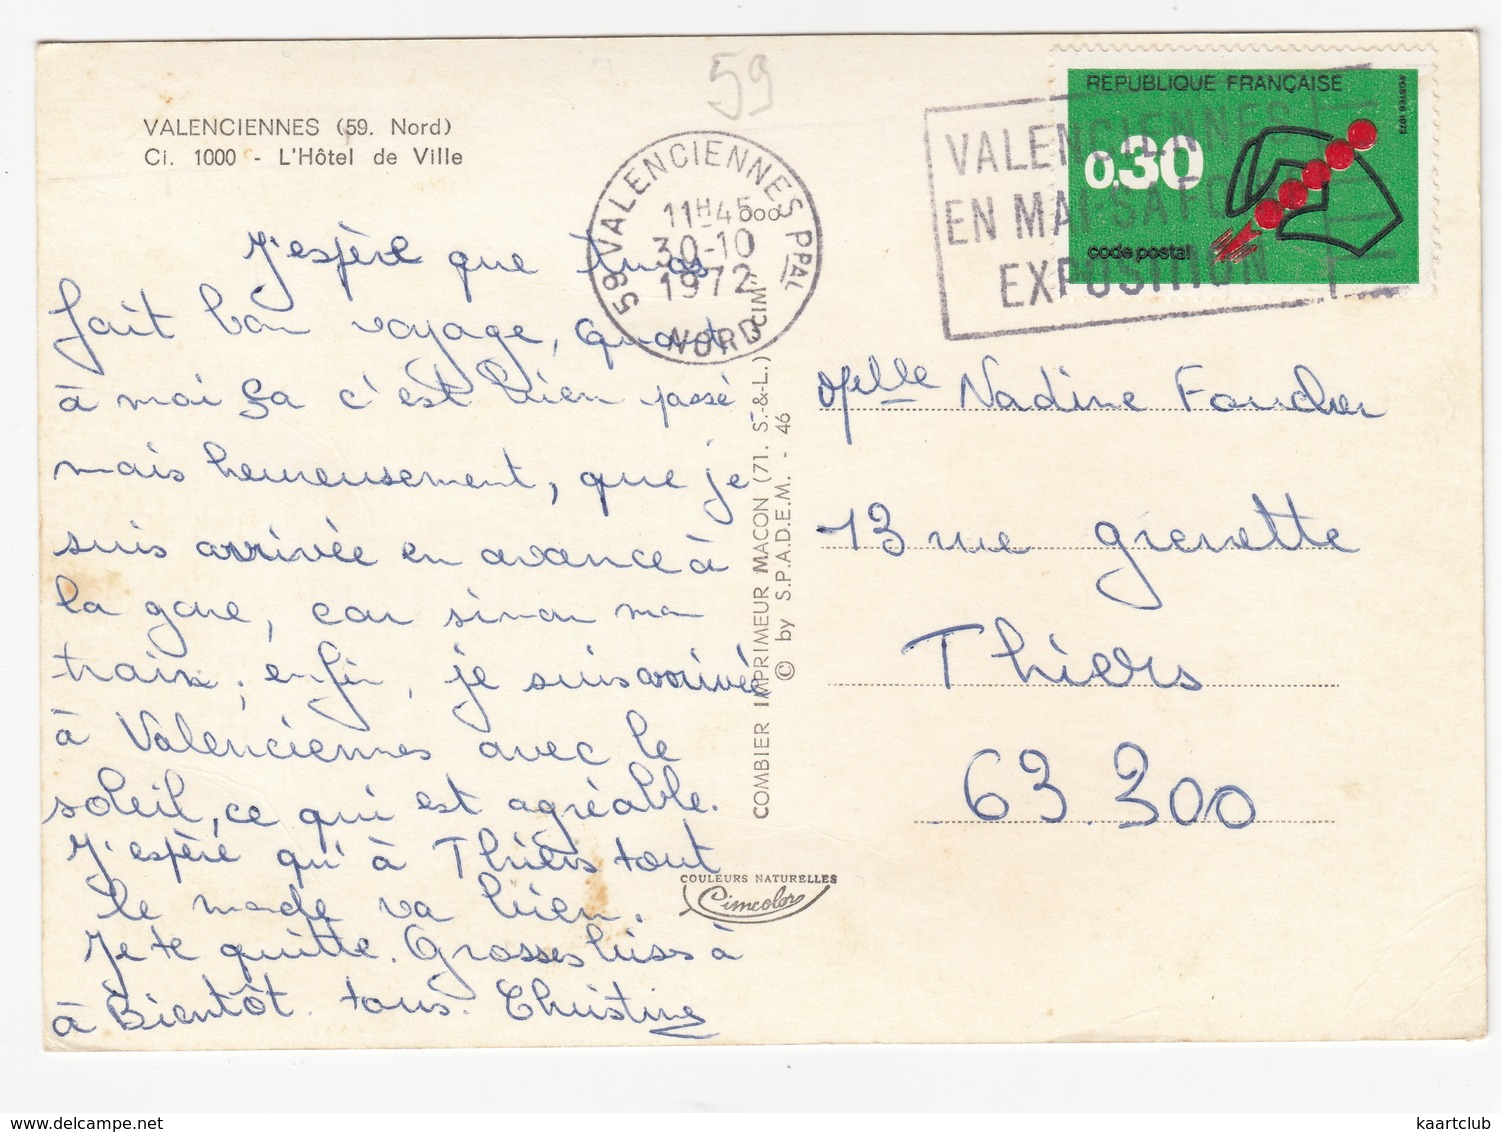 59
VALENCIENNES (59. Nord)
Ci. 1000 - L'Hôtel de Ville
59 VALENCIENNES PPAL
11H45
30-10
1972
NORD
VALENCIENNES
EN MAI-SAFE
EXPOSITION
REPUBLIQUE FRANÇAISE
0.30
code postal
POSTES 1972
J'espère que tu as
fait bon voyage, Quant
à moi ça c'est bien passé
mais heureusement, que je
suis arrivée en avance à
la gare, car sinon mon
train; enfin, je suis arrivée
à Valenciennes avec le
soleil, ce qui est agréable.
J'espère qu'à Thiers tout
le monde va bien.
Je te quitte. Grosses bises à
à Bientôt. tous. Christine
COMBIER IMPRIMEUR MACON (71. S.-&-L.) "CIM"
© by S.P.A.D.E.M. - 46
COULEURS NATURELLES
Cimcolor
Melle Nadine Foucher
13 rue grenette
Thiers
63.300
kaartclub
www.delcampe.net